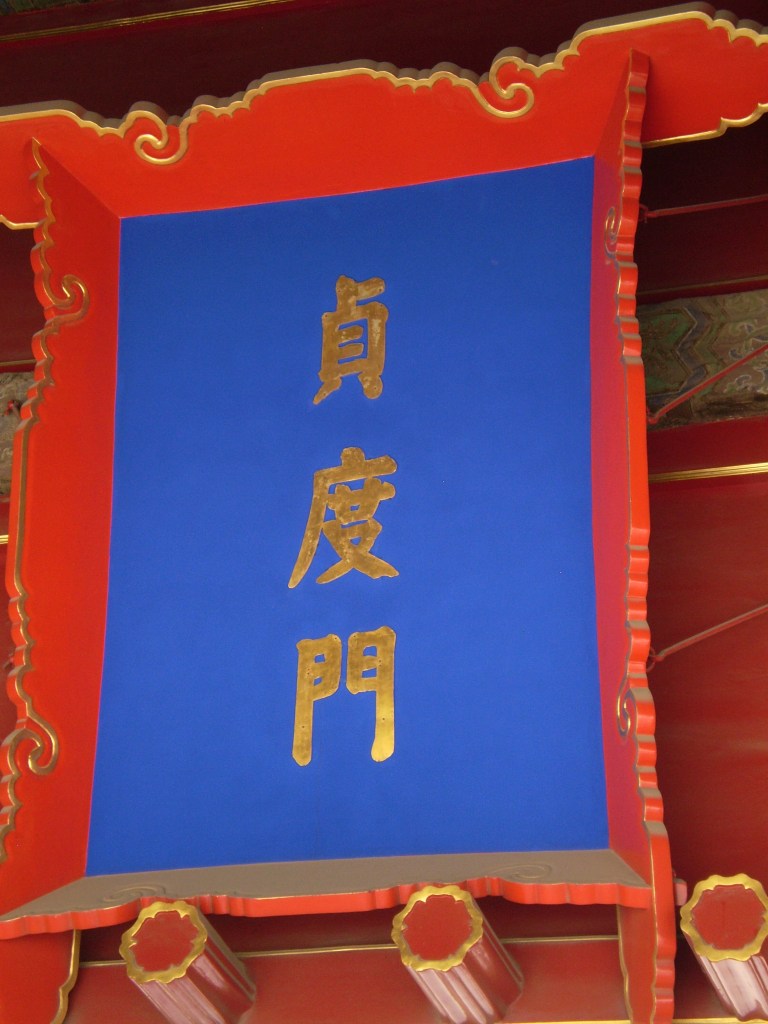 貞度門